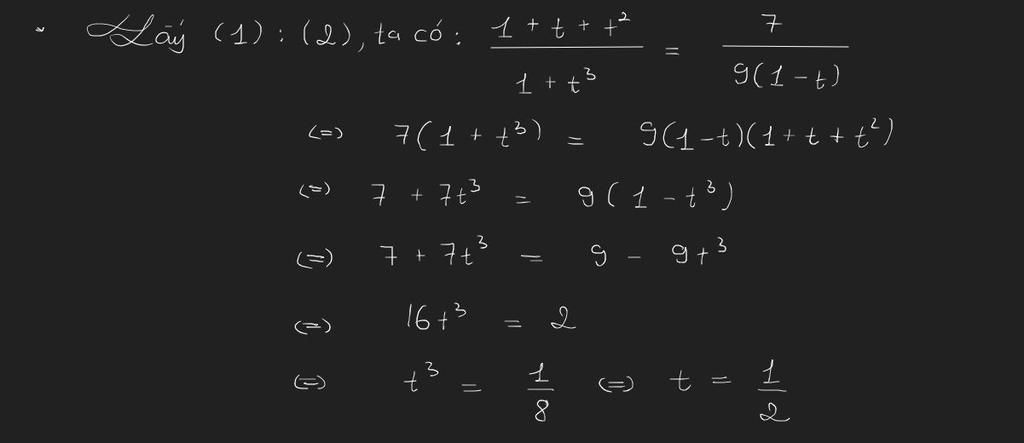 * Lấy (1) : (2), ta có: (1 + t + t²)/(1 + t³) = 7/(9(1-t))
(=) 7(1 + t³) = 9(1-t)(1+t+t²)
(=) 7 + 7t³ = 9(1 - t³)
(=) 7 + 7t³ = 9 - 9t³
(=) 16t³ = 2
(=) t³ = 1/8 (=) t = 1/2